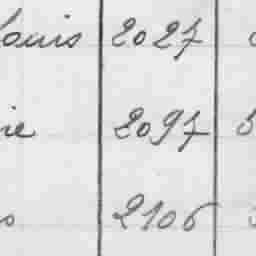 Louis 2027
ie 2097 5
s 2106